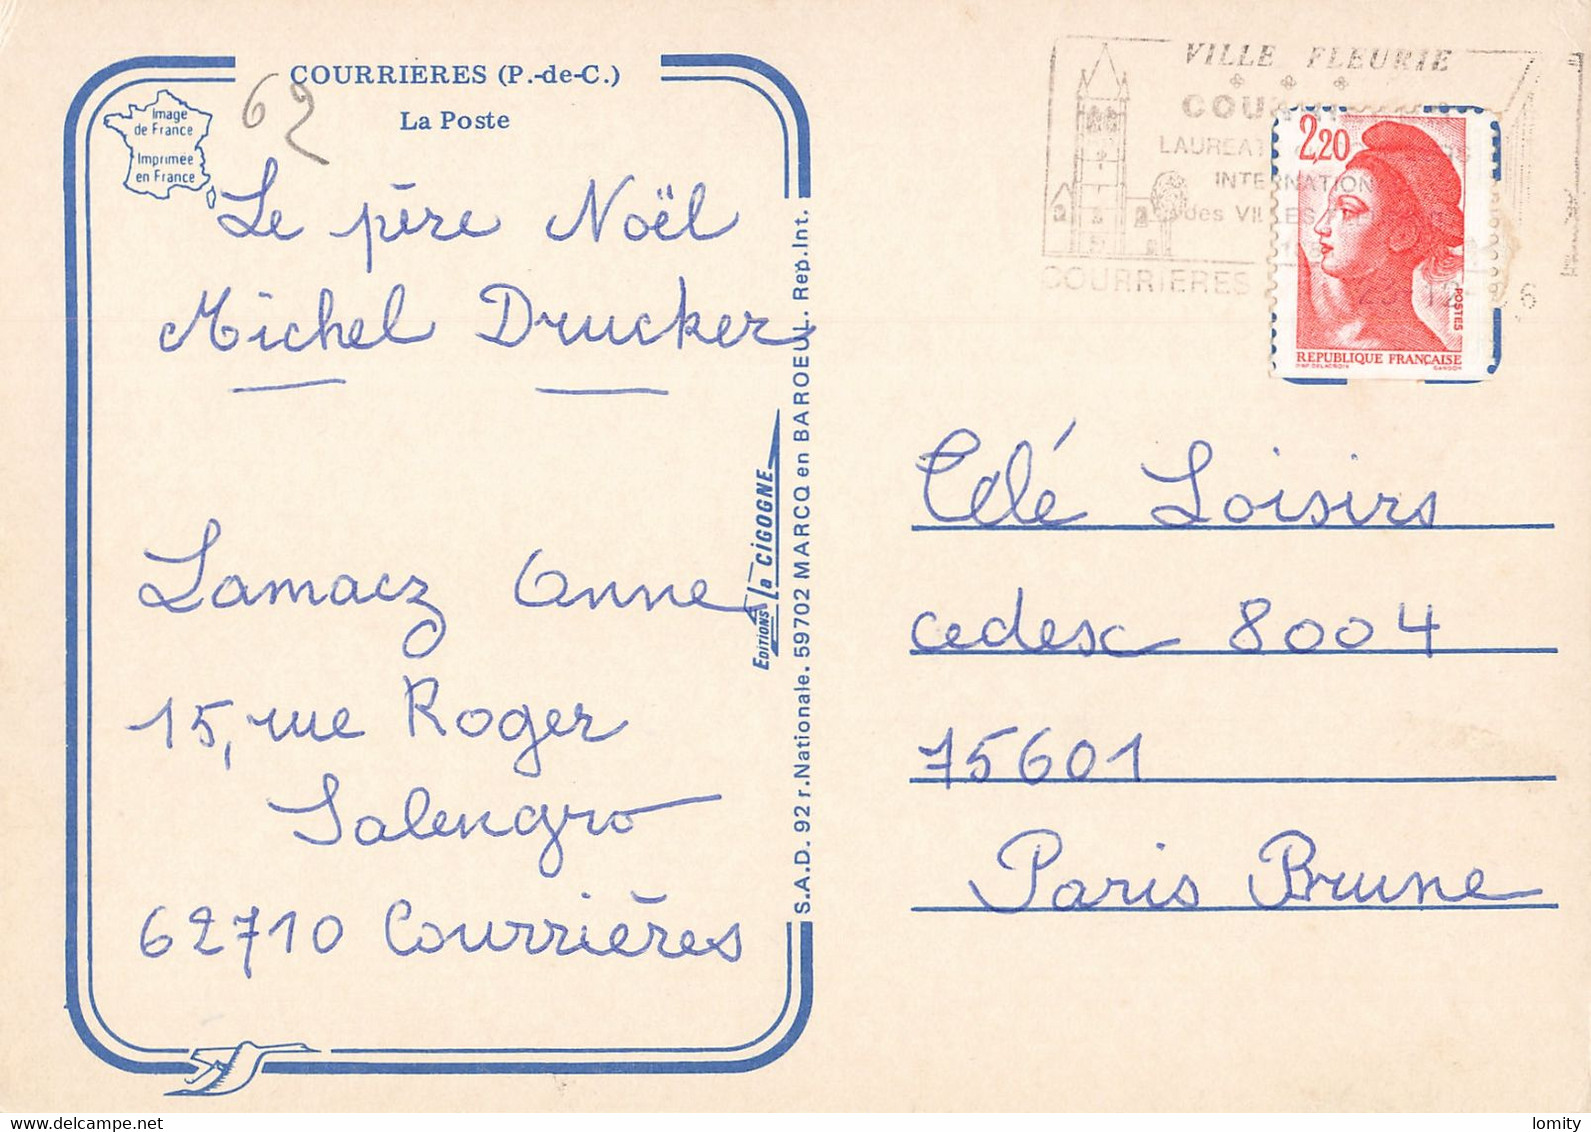 COURRIERES (P.-de-C.)
La Poste
62
Image
de France
Imprimée
en France
Le père Noël
Michel Drucker
Lamacz Anne
15, rue Roger
Salengro
62710 Courrières
Editions la CIGOGNE
S.A.D. 92 r. Nationale. 59702 MARCQ en BAROEUL. Rep. Int.
VILLE FLEURIE
LAUREAT
INTERNATION
des VILLES
COURRIERES
2,20
POSTES
REPUBLIQUE FRANÇAISE
D'AP. DELACROIX GANDON
Télé Loisirs
cedex 8004
75601
Paris Brune
lomity